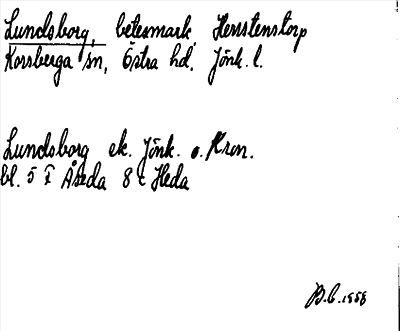 Lundsborg, betesmark, Herrstenstorp
Korsberga sn, Östra hd. Jönk. l.
Lundsborg ek. Jönk. o. Kron.
bl. 5 Åseda 8 c Heda
B.C. 1958